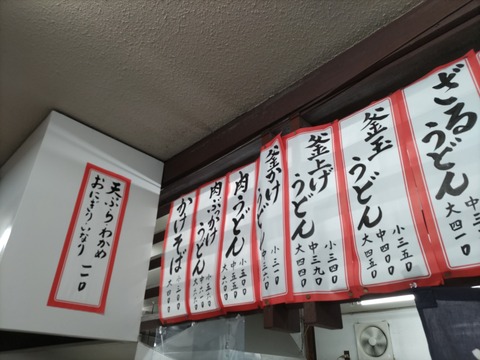 ざる
うどん
大四一〇
釜玉
うどん
小三五〇
釜上げ
うどん
小三四〇
中三九〇
大四四〇
釜かけ
うどん
小三一〇
中三六〇
肉うどん
肉ぶっかけ
うどん
かけそば
天ぷら わかめ
おにぎり いなり
一一〇